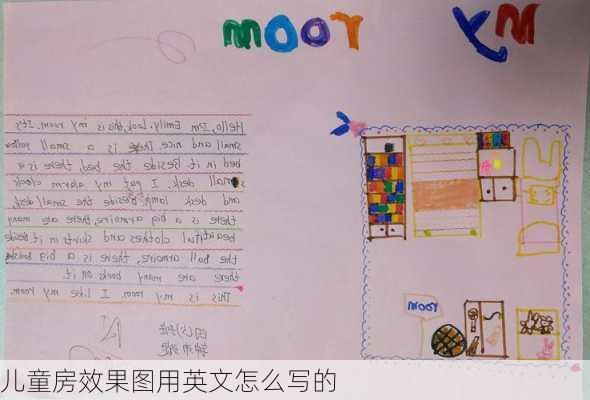 My room
Hello, I'm Emily. Look, this is my room. It's
small and nice. There is a small yellow
bed in it. Beside the bed, there is a
small desk. I put my alarm clock
and desk lamp. Beside the small desk
there is a big armoire, there are many
beautiful clothes and skirts in it. Beside
the ball armoire, there is a big
there are many books on it.
This is my room. I like my room.
room
儿童房效果图用英文怎么写的